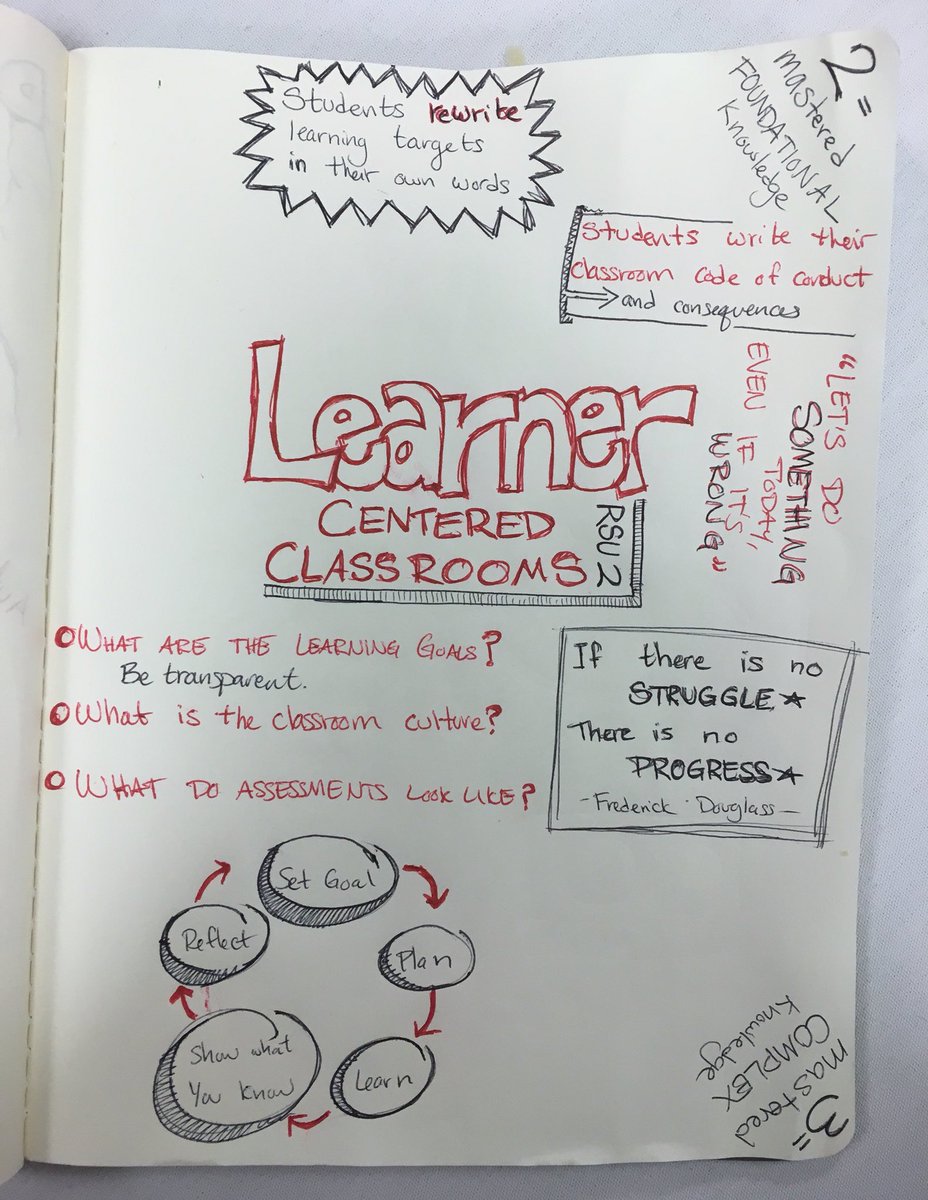 Students rewrite
learning targets
in their own words
2=
mastered
FOUNDATIONAL
Knowledge
Students write their
classroom code of conduct
and consequences
"LET'S DO
SOMETHING
TODAY,
EVEN IF IT'S
WRONG"
Learner
CENTERED
CLASSROOMS
RSU2
WHAT ARE THE LEARNING GOALS?
Be transparent.
What is the classroom culture?
WHAT DO ASSESSMENTS LOOK LIKE?
If there is no
STRUGGLE
There is no
PROGRESS
-Frederick Douglass-
Set Goal
Plan
Learn
Show what
You know
Reflect
3=
mastered
COMPLEX
Knowledge